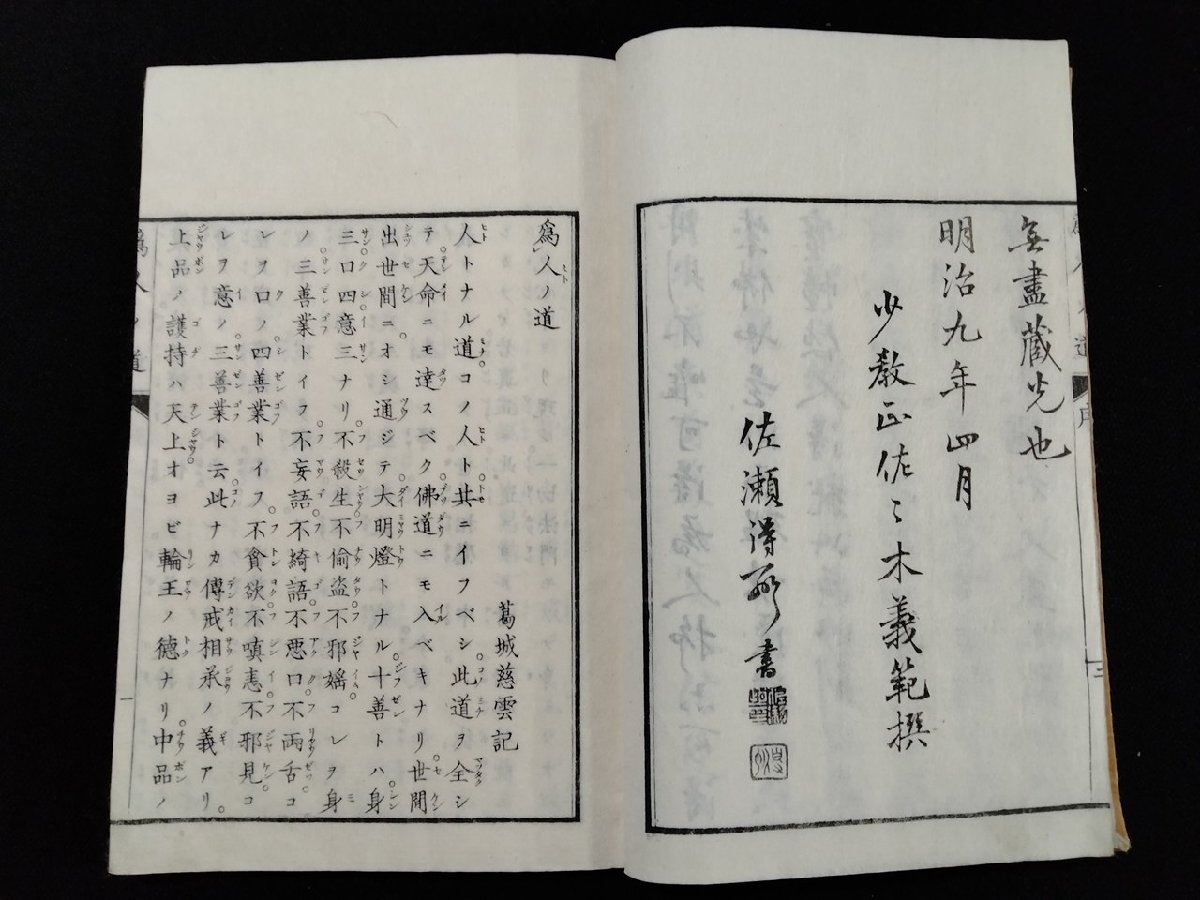 無盡藏光也
明治九年四月
少教正佐々木義範撰
佐瀬得所書
爲人ノ道
葛城慈雲記
人トナル道コノ人ト共ニイフベシ此道ヲ全シ
テ天命ニモ達スベク佛道ニモ入ベキナリ世間
出世間ニオシ通ジテ大明燈トナル十善トハ身
三口四意三ナリ不殺生不偷盗不邪婬コレヲ身
ノ三善業トイフ不妄語不綺語不惡口不兩舌コ
レヲ口ノ四善業トイフ不貪欲不嗔恚不邪見コ
レヲ意ノ三善業ト云此ナカ傳戒相承ノ義アリ
上品ノ護持ハ天上オヨビ輪王ノ德ナリ中品ノ
爲人ノ道
一